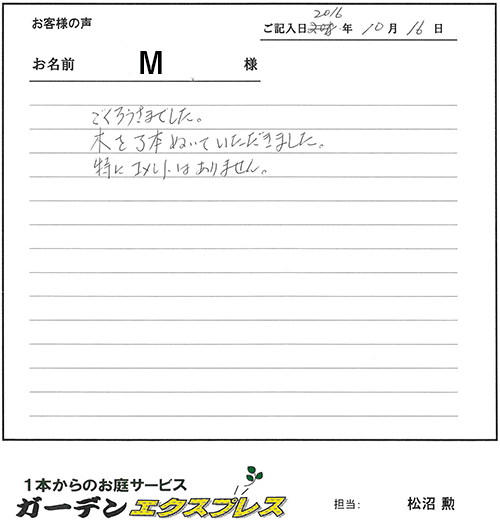 お客様の声
2016
ご記入日 年 10月 16日
お名前 M 様
ごくろうさまでした。
木を3本ぬいていただきました。
特にコメントはありません。
1本からのお庭サービス
ガーデン エクスプレス
担当: 松沼 勲